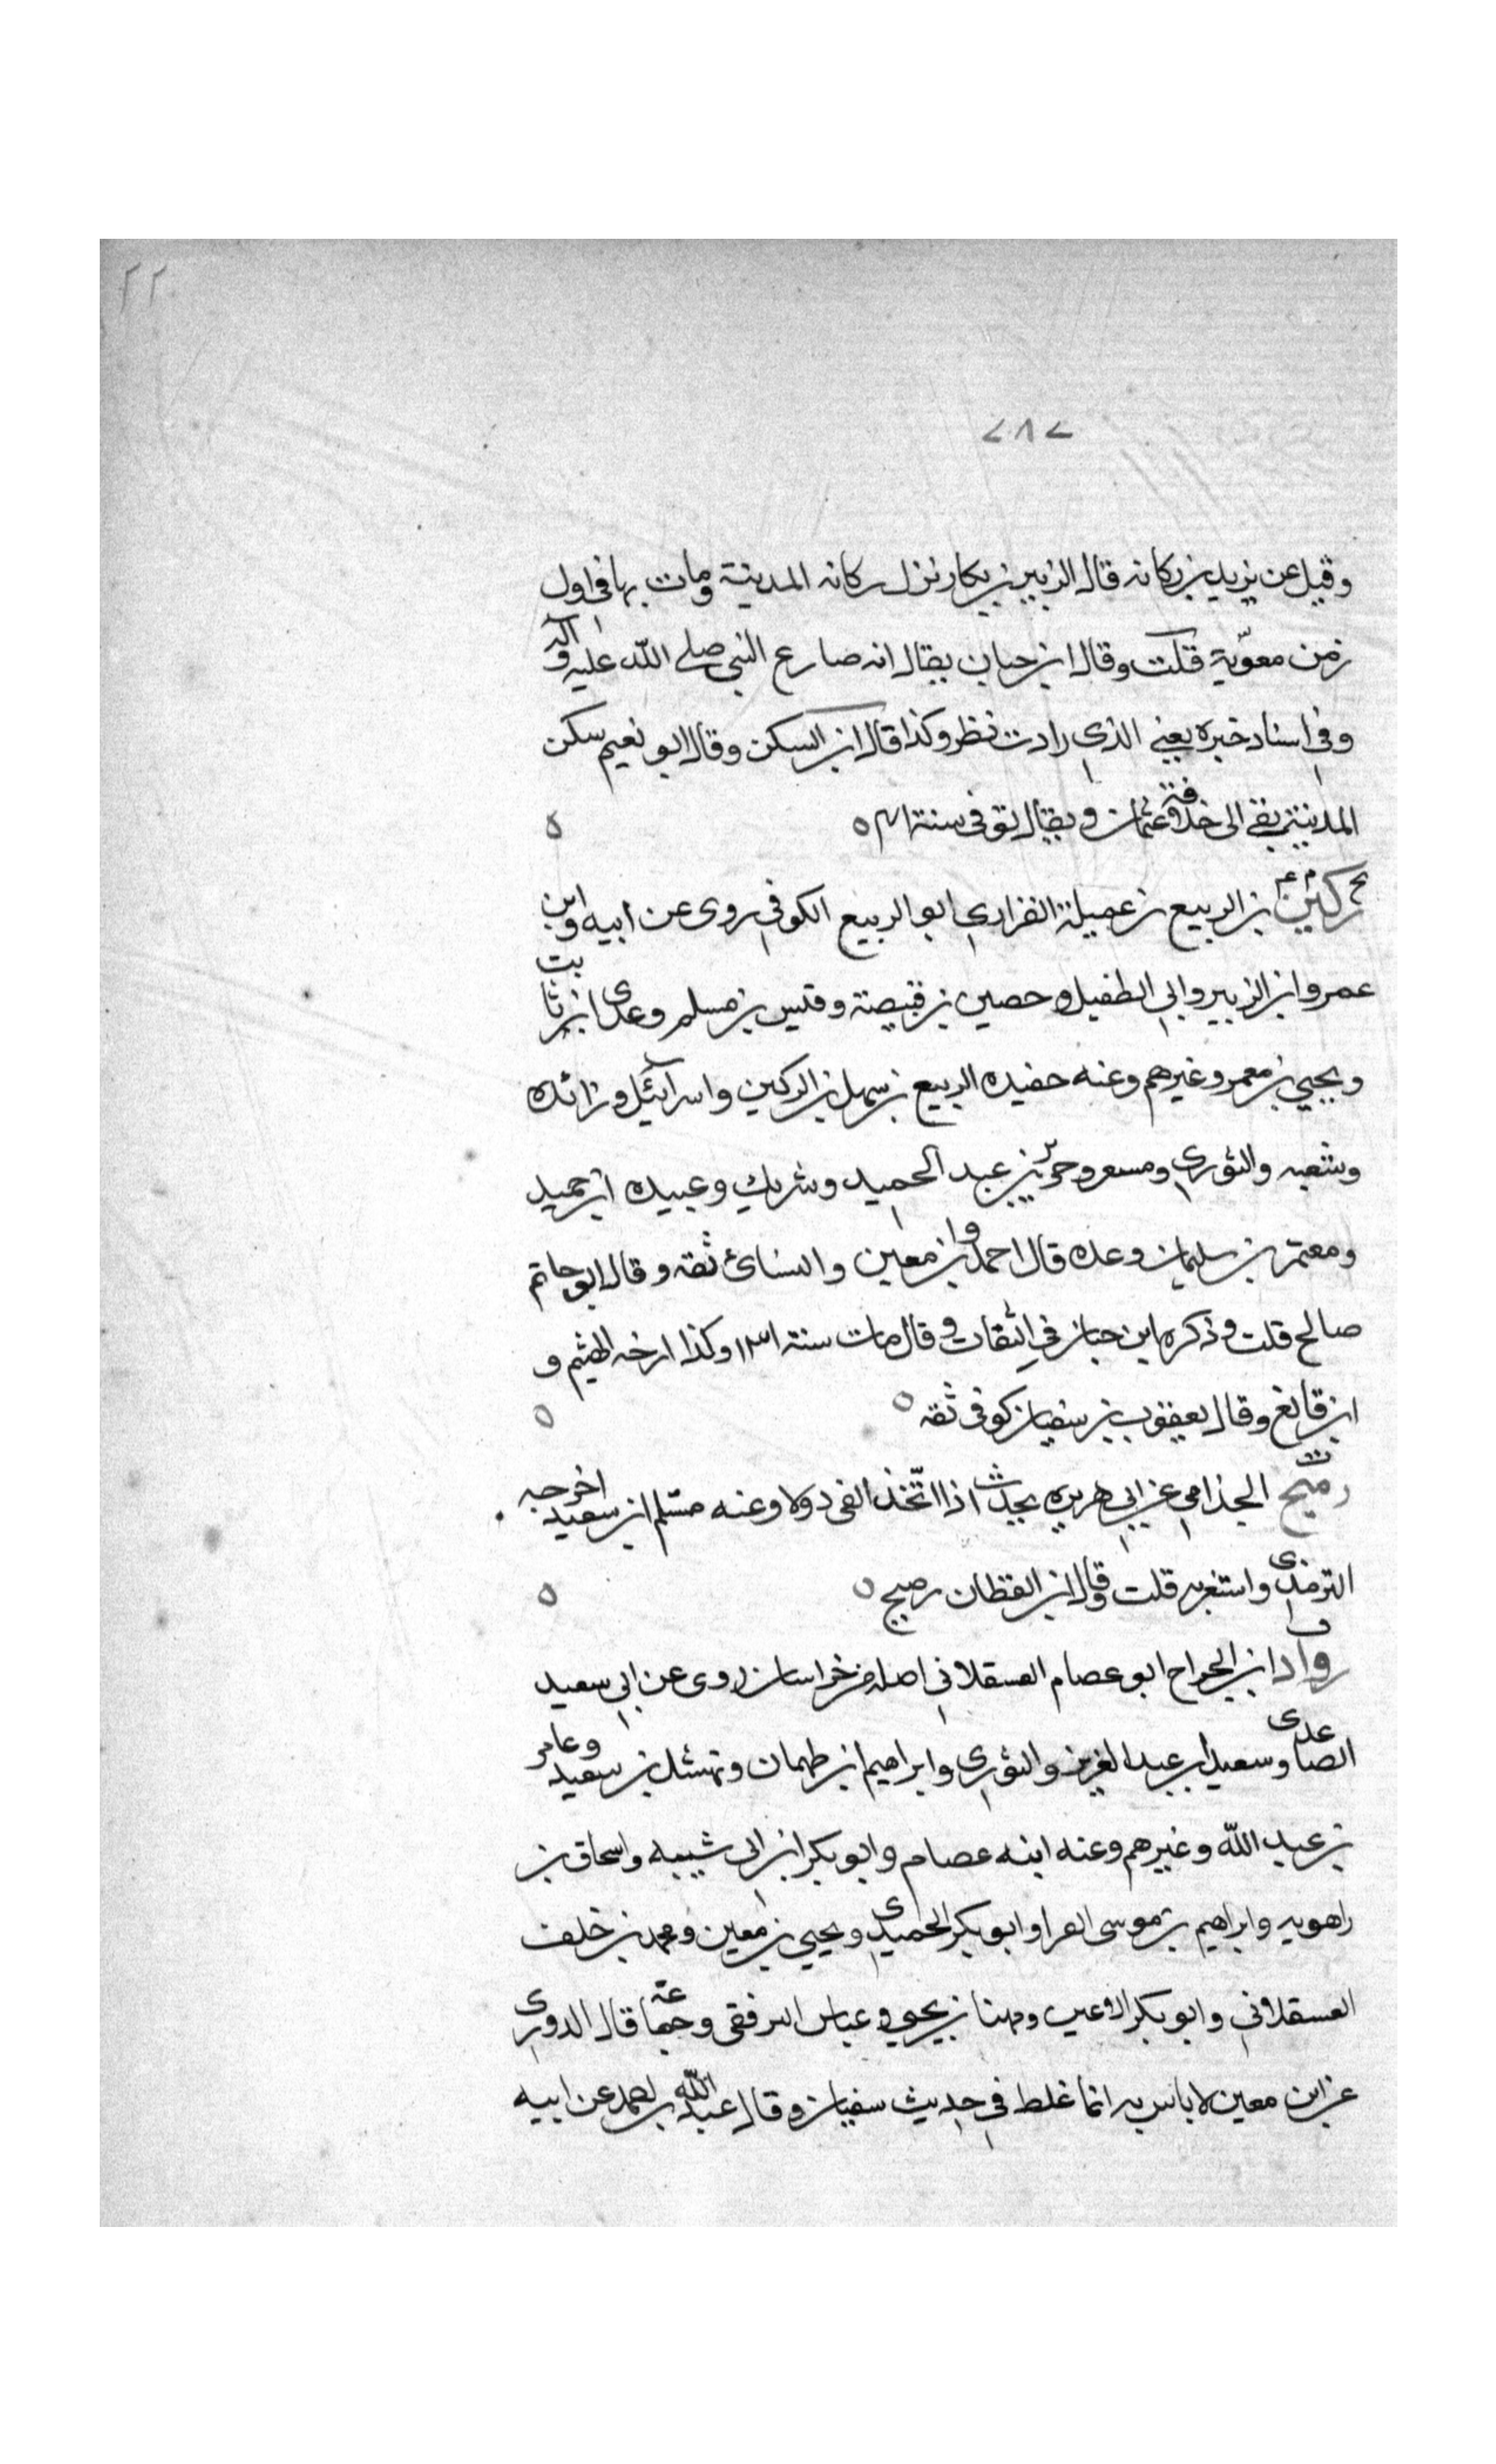 ٢٢
٢٨٢
وقيل عن يزيد بن ركانه قال الزبير بن بكار نزل ركانه المدينة ومات بها في اول
زمن معوية قلت وقال ابن حبان يقال انه صارع النبي صلى الله عليه وآله
وفي اسناد خبره يعني الذي رادت نظر وكذا قال ابن السكن وقال ابو نعيم سكن
المدينة بقي الى خلافة عثمان ويقال توفي سنة ٤١ ه
ركين بن الربيع بن عميلة الفزاري ابو الربيع الكوفي روى عن ابيه وابن
عمر وابن الزبير وابي الطفيل وحصين بن قبيصة وقيس بن مسلم وعدي ابن ثابت
ويحيي بن معمر وغيرهم وعنه حفيده الربيع بن سهل بن الركين واسرآئيل وزائده
وشعبه والثوري ومسعر وجرير بن عبد الحميد وشريك وعبيده ابن حميد
ومعتمر بن سليمان وعده قال احمد وابن معين والنسائ ثقه وقال ابو حاتم
صالح قلت وذكره ابن حبان في الثقات وقال مات سنة ١٣١ وكذا ارخه الهيثم و
ابن قانع وقال يعقوب بن سفيان كوفي ثقه ه
رميح الجذامي عن ابي هريره بحديث اذا اتخذ الفي دولا وعنه مسلم ابن سعيد اخرجه
الترمذي واستغربه قلت وقال ابن القطان رميح ه
رواد ابن الجراح ابو عصام العسقلاني اصله من خراسان روى عن ابي سعيد
الصاعدى وسعيد بن عبد العزيز والثوري وابراهيم ابن طهمان ونهشل بن سعيد وعامر
بن عبد الله وغيرهم وعنه ابنه عصام وابو بكر ابن ابى شيبه واسحاق بن
راهويه وابراهيم بن موسى الفرا وابو بكر الحميدي ويحيي بن معين ومحمد بن خلف
العسقلاني وابو بكر الاعين ومهنا بن يحيي وعباس الترفقي وجماعة قال الدوري
عن ابن معين لا باس به انما غلط في حديث سفيان وقال عبد الله بن احمد عن ابيه